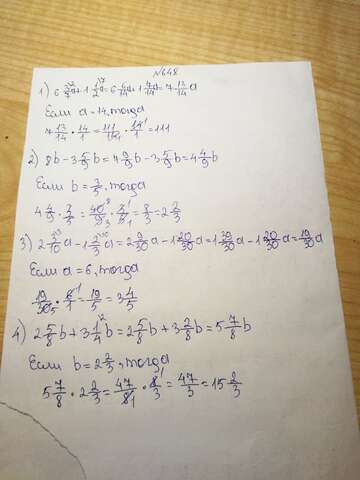 №648
1) 6 3/7 a + 1 1/2 a = 6 6/14 a + 1 7/14 a = 7 13/14 a
Если a = 14, тогда
7 13/14 · 14/1 = 111/14 · 14/1 = 111
2) 8b - 3 5/9 b = 7 9/9 b - 3 5/9 b = 4 4/9 b
Если b = 3/5, тогда
4 4/9 · 3/5 = 40/9 · 3/5 = 8/3 = 2 2/3
3) 2 3/10 a - 1 2/3 a = 2 9/30 a - 1 20/30 a = 1 39/30 a - 1 20/30 a = 19/30 a
Если a = 6, тогда
19/30 · 6/1 = 19/5 = 3 4/5
4) 2 5/8 b + 3 1/4 b = 2 5/8 b + 3 2/8 b = 5 7/8 b
Если b = 2 2/3, тогда
5 7/8 · 2 2/3 = 47/8 · 8/3 = 47/3 = 15 2/3